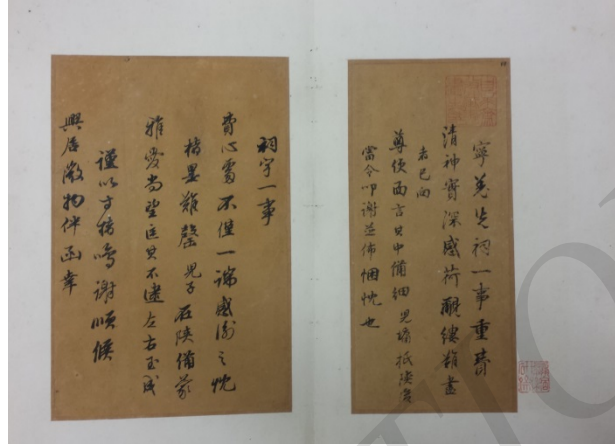 寧羌先祠一事重費
清神實深感荷覼縷頛盡
弟已向
尊使面言其中備細兒輩抵陝后
當令叩謝並佈悃忱也
祠宇一事
費心當不僅一端感澍之忱
楮墨難罄兒子在陝備蒙
雅愛尚望匡其不逮左右玉成
謹以寸楮鳴謝順候
興居微物伴函幸